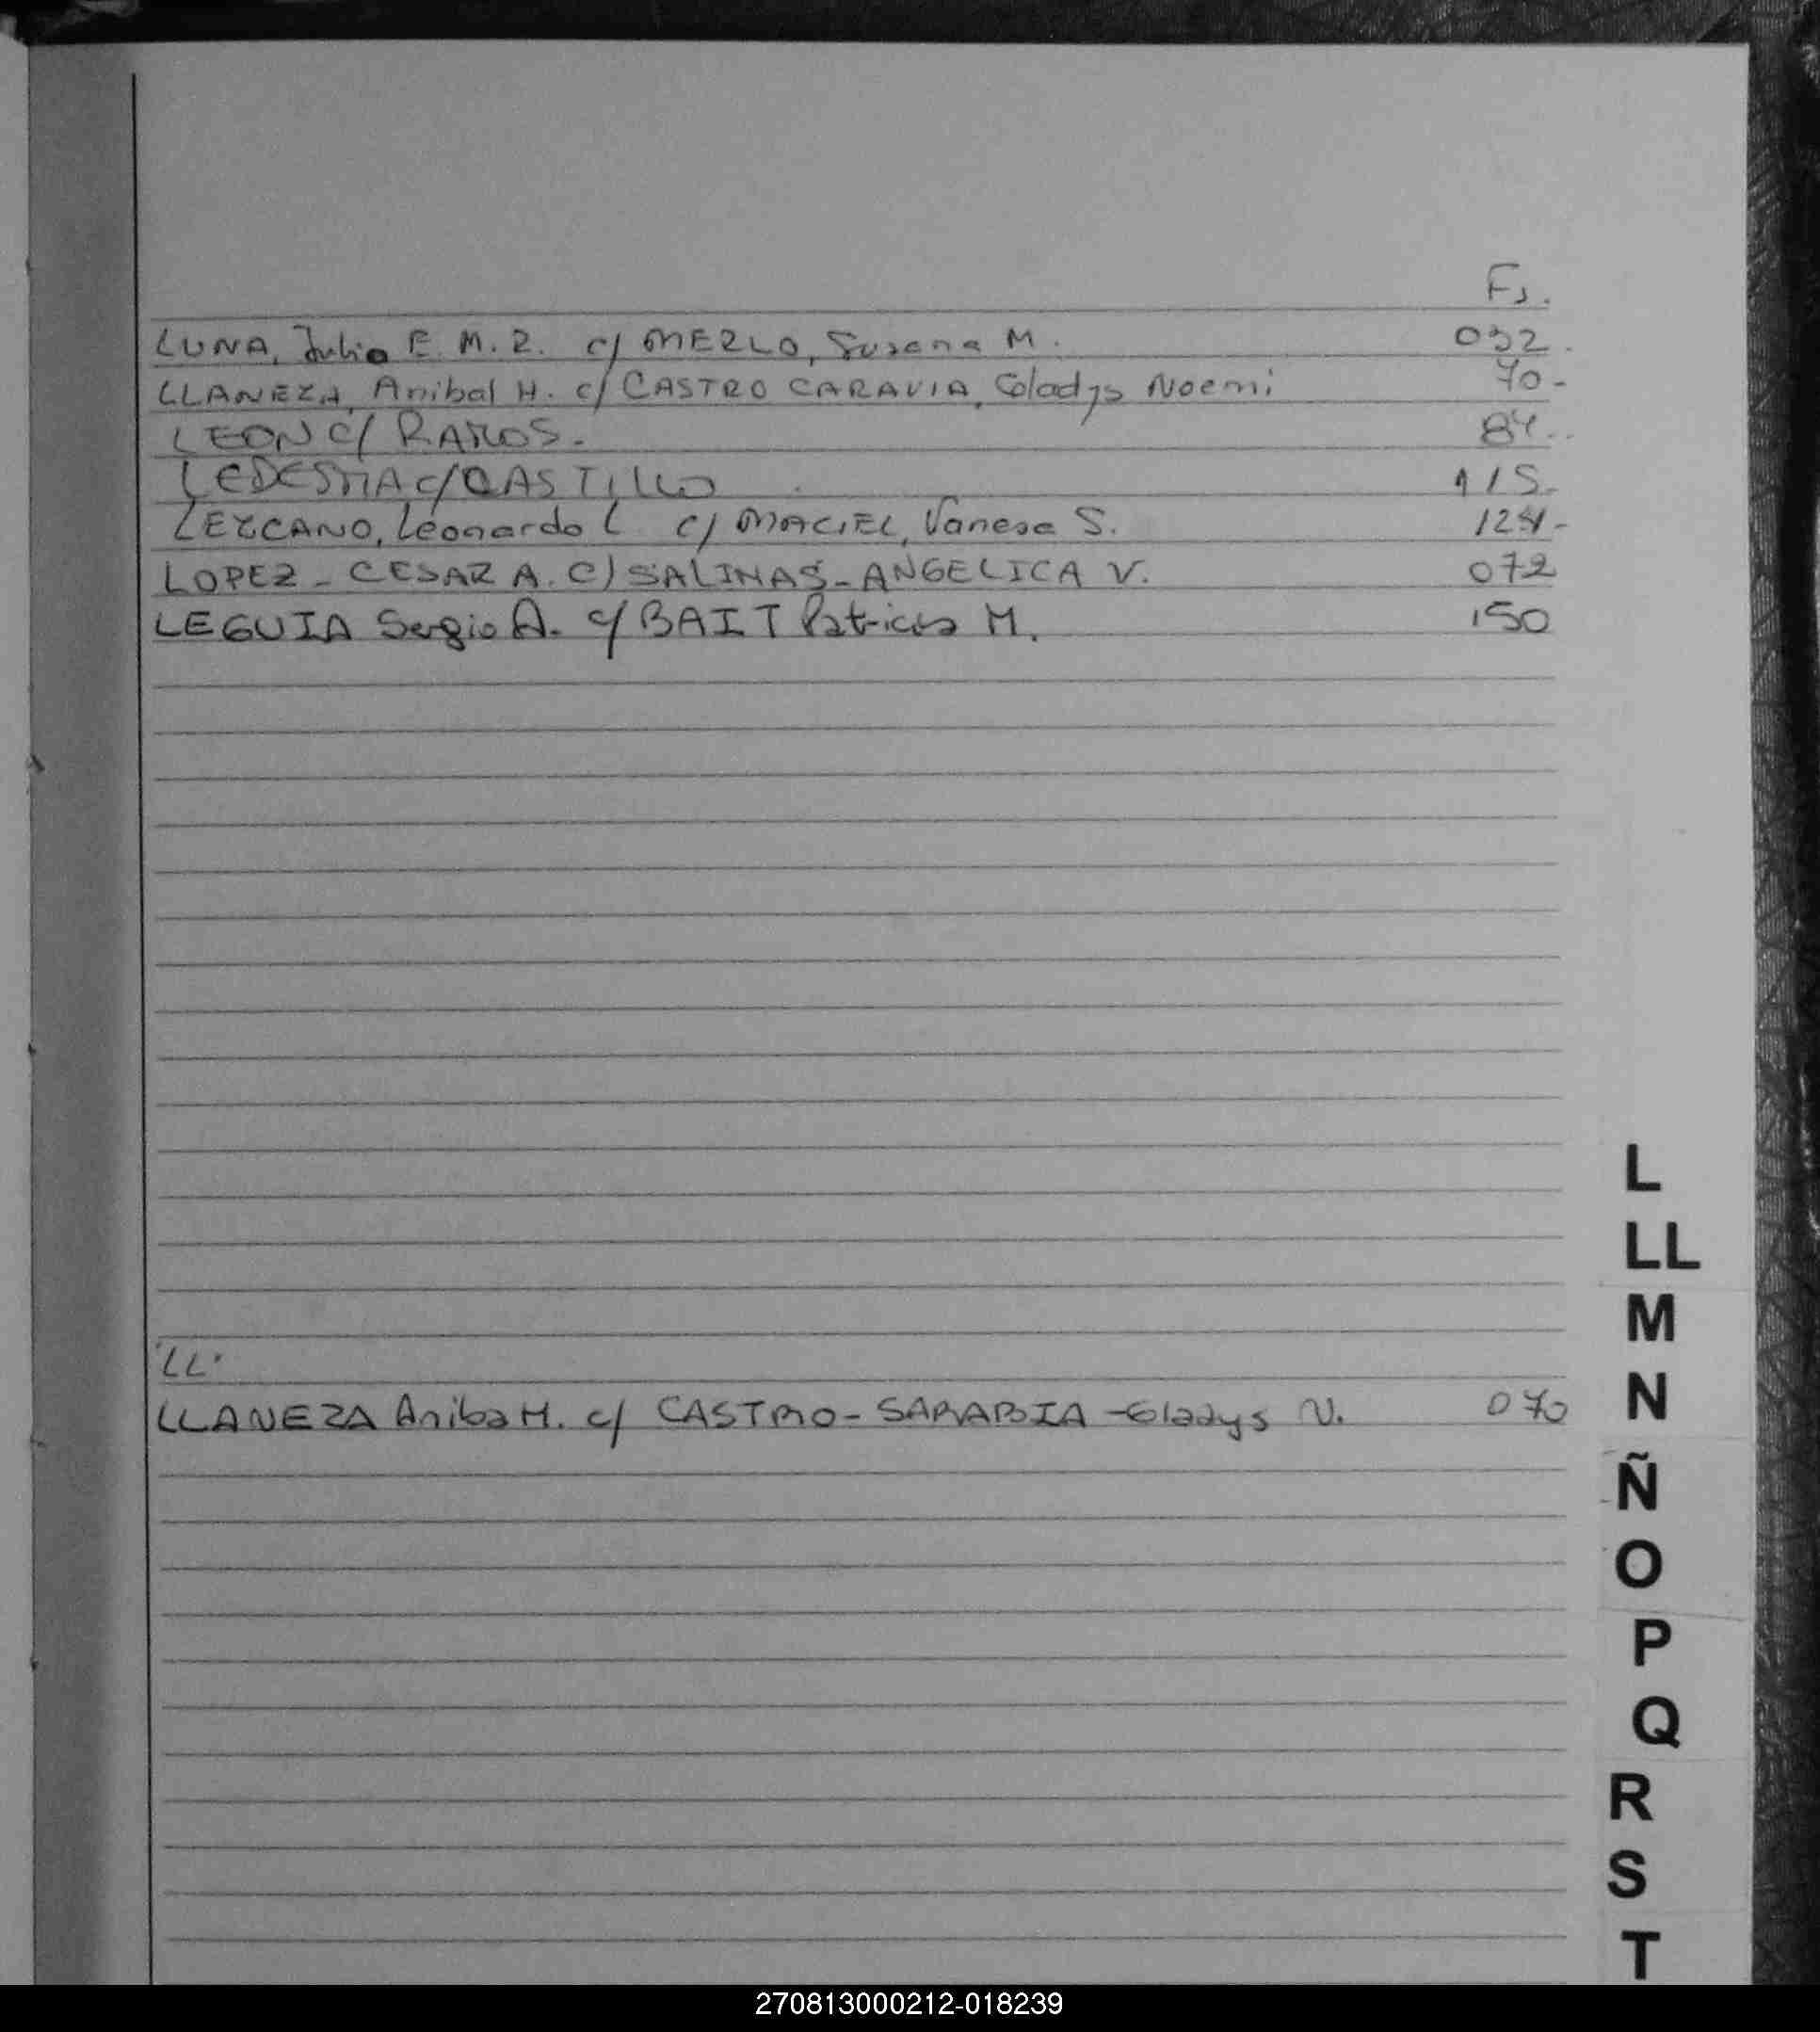 Fs.
LUNA, Julio E. M. R. c/ MERLO, Susana M. 032.
LLANEZA, Anibal H. c/ CASTRO CARAVIA, Gladys Noemi 70-
LEON C/ RAMOS. 84-
LEDESMA c/ CASTILLO 115-
LEZCANO, Leonardo L. c/ MACIEL, Vanesa S.
LOPEZ - CESAR A. C/ SALINAS - ANGELICA V. 072
LEGUIA Sergio A. c/ BAIT Patricia M. 150
L
LL
M
"LL"
LLANEZA Aniba H. c/ CASTRO - SARABIA - Gladys N. 070
N
Ñ
O
P
Q
R
S
T
270813000212-018239